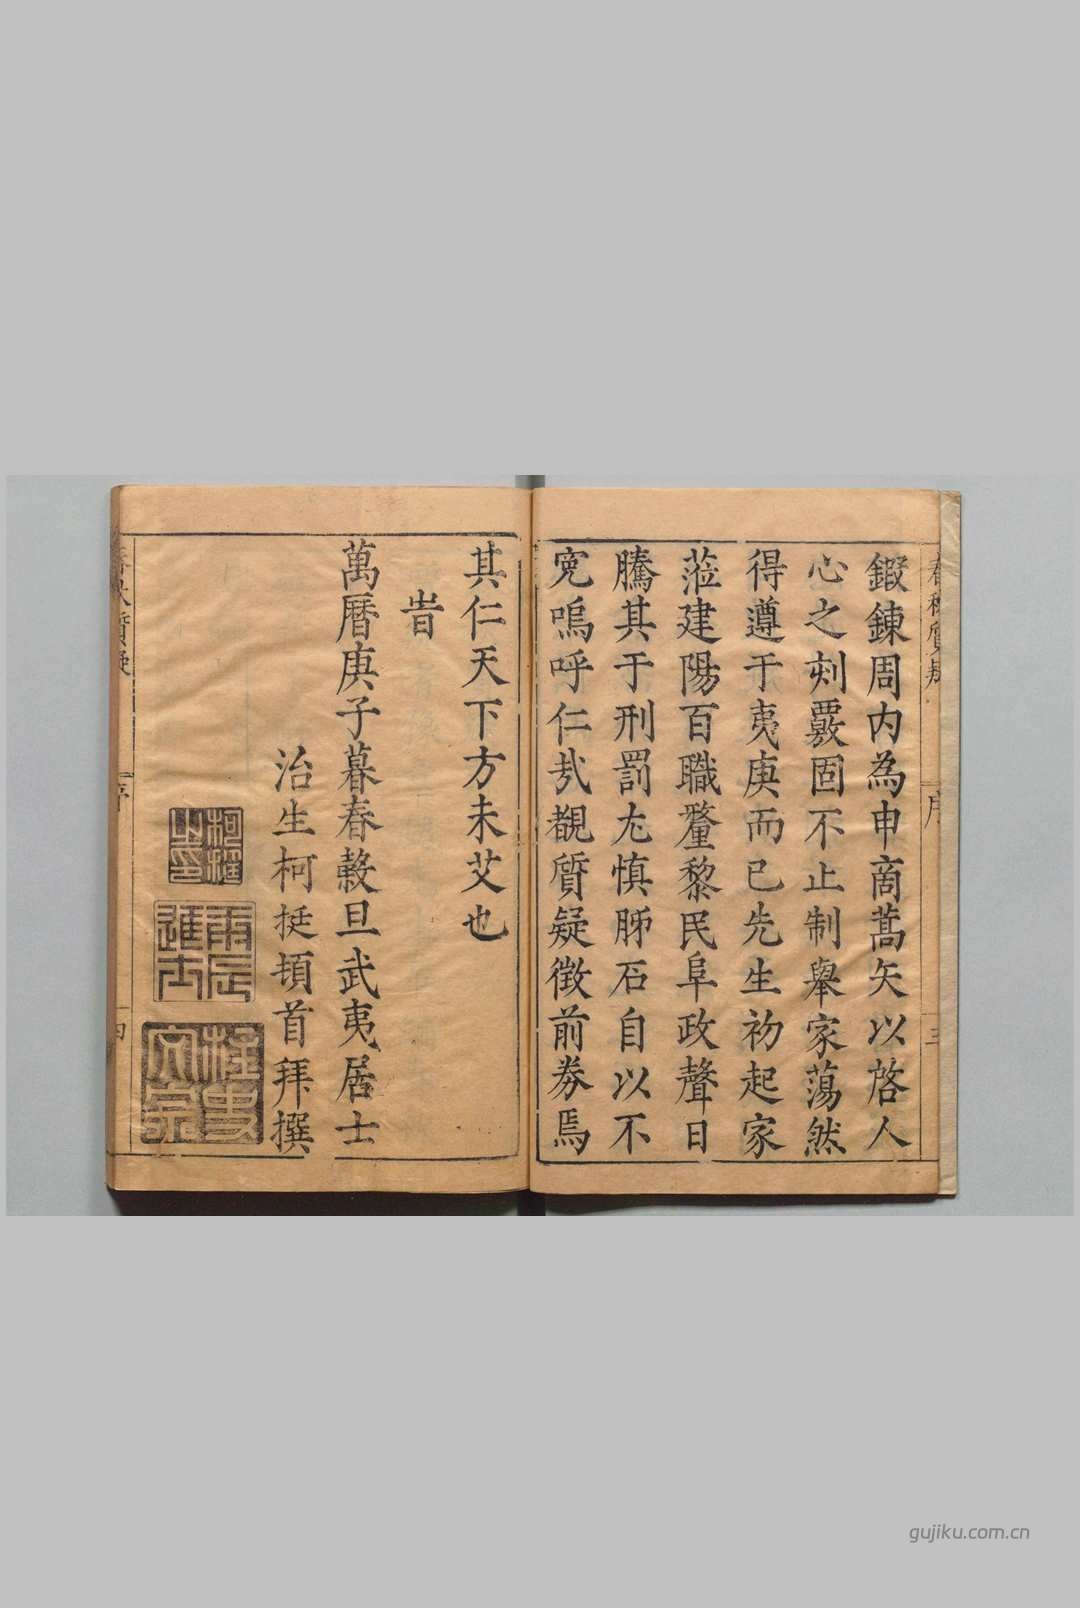 春秋質疑
序
三
鍜鍊周内為申商蒿矢以啓人
心之刻覈固不止制舉家蕩然
得遵于夷庚而已先生初起家
蒞建陽百職釐黎民阜政聲日
騰其于刑罰尤慎肺石自以不
寃嗚呼仁㢤覩質疑徵前券焉
其仁天下方未艾也
旹
萬曆庚子暮春穀旦武夷居士
治生柯挺頓首拜撰
柯挺之印
丙辰進士
柱史文宗
春秋質疑
序
四
gujiku.com.cn